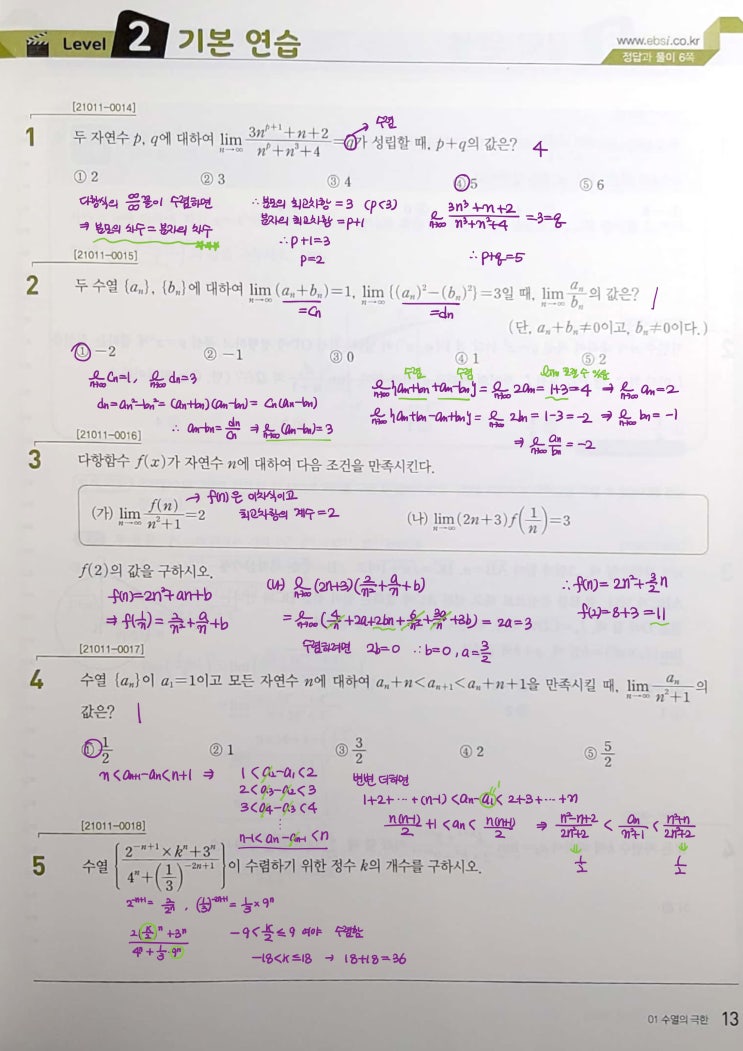 Level 2 기본 연습
www.ebsi.co.kr
정답과 풀이 6쪽
[21011-0014]
1 두 자연수 p, q에 대하여 lim_{n→∞} (3n^{p+1}+n+2)/(n^p+n^3+4)=q가 성립할 때, p+q의 값은? 4
→ 수렴
① 2 ② 3 ③ 4 ④ 5 ⑤ 6
다항식의 ∞/∞꼴이 수렴하면
⇒ 분모의 차수 = 분자의 차수
∴ 분모의 최고차항 = 3 (p<3)
분자의 최고차항 = p+1
∴ p+1=3
p=2
lim_{n→∞} (3n³+n+2)/(n³+n²+4) =3=q
∴ p+q=5
[21011-0015]
2 두 수열 {a_n}, {b_n}에 대하여 lim_{n→∞}(a_n+b_n)=1, lim_{n→∞}{(a_n)²-(b_n)²}=3일 때, lim_{n→∞} a_n/b_n의 값은? 1
=Cn =dn
(단, a_n+b_n≠0이고, b_n≠0이다.)
① -2 ② -1 ③ 0 ④ 1 ⑤ 2
lim_{n→∞} Cn=1, lim_{n→∞} dn=3
dn=an²-bn²=(an+bn)(an-bn)= Cn(an-bn)
∴ an-bn=dn/Cn ⇒ lim_{n→∞}(an-bn)=3
수렴 수렴
lim_{n→∞}{an+bn+an-bn}= lim_{n→∞} 2an= 1+3=4 ⇒ lim_{n→∞} an=2
lim_{n→∞}{an+bn-an+bn}= lim_{n→∞} 2bn= 1-3=-2 ⇒ lim_{n→∞} bn=-1
⇒ lim_{n→∞} an/bn=-2
[21011-0016]
3 다항함수 f(x)가 자연수 n에 대하여 다음 조건을 만족시킨다.
(가) lim_{n→∞} f(n)/(n²+1)=2
→ f(n)은 이차식이고
최고차항의 계수=2
(나) lim_{n→∞}(2n+3)f(1/n)=3
f(2)의 값을 구하시오.
f(n)=2n²+an+b
⇒ f(1/n)=2/n²+a/n+b
(나) lim_{n→∞}(2n+3)(2/n²+a/n+b)
= lim_{n→∞}(4/n+2a+2bn+6/n²+3a/n+3b)=2a=3
수렴하려면 2b=0 ∴b=0, a=3/2
∴ f(n)=2n²+3/2n
f(2)=8+3=11
[21011-0017]
4 수열 {a_n}이 a₁=1이고 모든 자연수 n에 대하여 a_n+n<a_{n+1}<a_n+n+1을 만족시킬 때, lim_{n→∞} a_n/(n²+1)의
값은? 1
① 1/2 ② 1 ③ 3/2 ④ 2 ⑤ 5/2
n<a_{n+1}-an<n+1 ⇒
1<a₂-a₁<2
2<a₃-a₂<3
3<a₄-a₃<4
⋮
n-1<an-a_{n-1}<n
변변 더하면
1+2+…+(n-1)<an-a₁<2+3+…+n
n(n-1)/2+1<an<n(n+1)/2 ⇒ (n²-n+2)/(2n²+2)<an/(n²+1)<(n²+n)/(2n²+2)
1/2 1/2
[21011-0018]
5 수열 {(2^{-n+1}×k^n+3^n)/(4^n+(1/3)^{-2n+1})}이 수렴하기 위한 정수 k의 개수를 구하시오.
2^{-n+1}=2/2^n, (1/3)^{-2n+1}=1/3×9^n
(2(k/2)^n+3^n)/(4^n+1/3·9^n)
-9<k/2≤9 여야 수렴함
-18<k≤18 → 18+18=36
01 수열의 극한 13